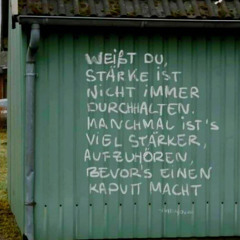 Weißt DU,
STÄRKE iST
NiCHT iMMER
DURCHHALTEN.
MANCHMAL iST'S
ViEL STÄRKER,
AUFZUHÖREN,
BEVOR'S EiNEN
KAPUTT MACHT